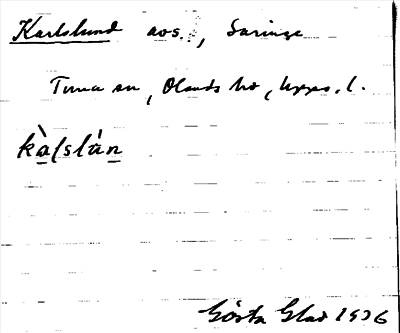 Karlslund avs., Saringe
Tuna sn, Olands hd, Upps. l.
kàlslán
Gösta Glad 1936